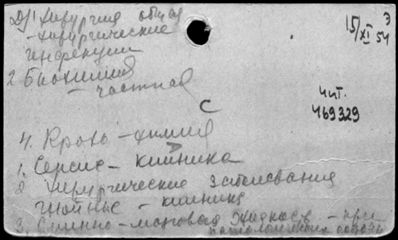 Д) Хирургия общая
- хирургические
инфекции
2 Биохимия
- частная
С
4. Кровь - химия
1. Сепсис - клиника
2 Хирургические заболевания
гнойные - клиника
3. Спинно-мозговая жидкость - при
патологических
15/XI 54
3
чит.
469329